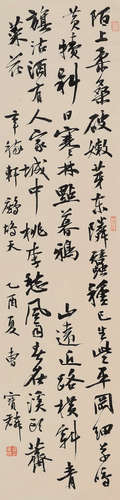 陌上柔桑破嫩芽東隣蠶種已生些平岡細草鳴
黃犢斜日寒林點暮鴉 山遠近路橫斜青
旗沽酒有人家城中桃李愁風雨春在溪頭薺
菜花 辛稼軒鷓鴣天 乙酉夏曹寶麟